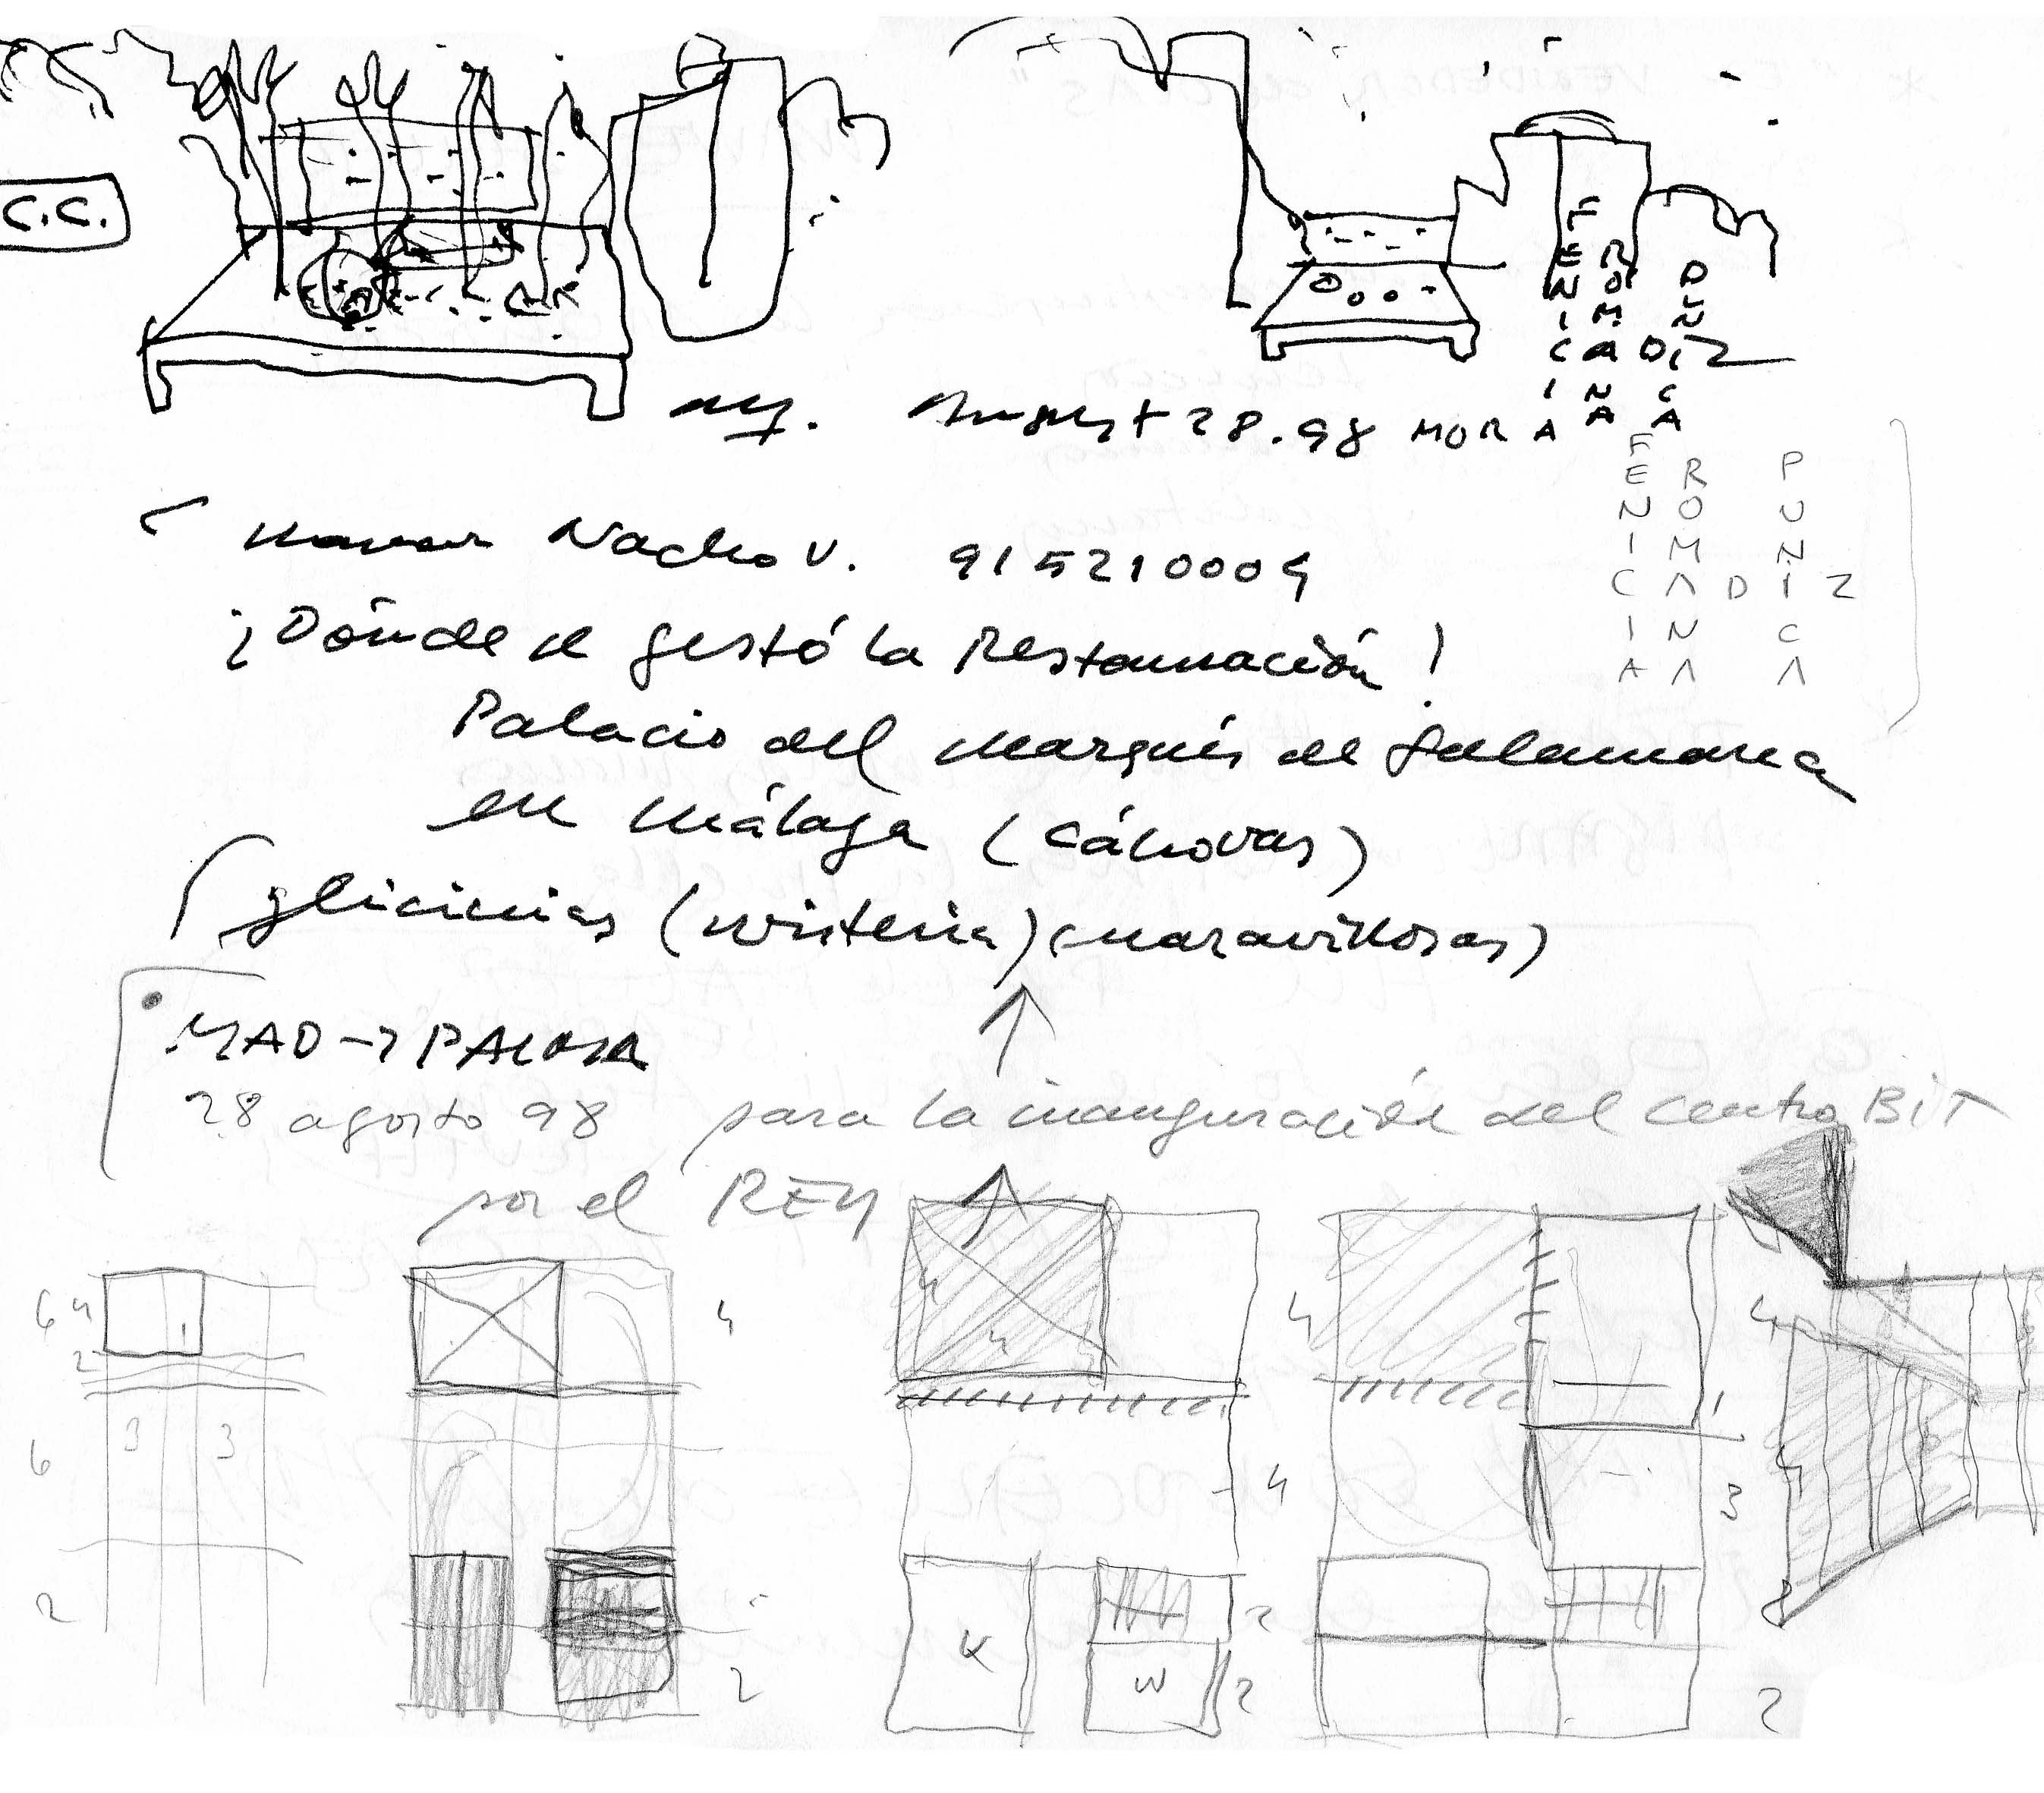 C.C.
ny. August 28.98 MORA
FENICIA
ROMANA
PUNICA
CADIZ
FENICIA
ROMANA
PUNICA
CADIZ
Nacho V. 915210004
¡Dónde se gestó la Restauración!
Palacio del Marqués de Salamanca
en Málaga (Cánovas)
glicinias (wisteria) (maravillosas)
MAD → PALMA
28 agosto 98 para la inauguración del Centro BIT
por el REY
4 4
6 4 4 4 4
2
1
6 3 3 4 3
2 2 2
K W
2 2 2